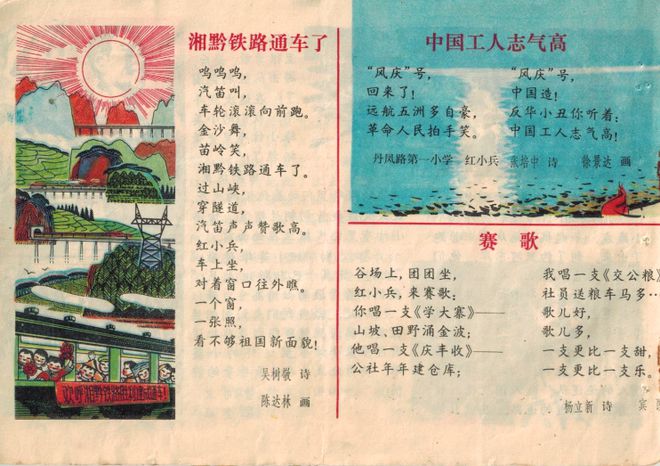 湘黔铁路通车了
呜呜呜，
汽笛叫，
车轮滚滚向前跑。
金沙舞，
苗岭笑，
湘黔铁路通车了。
过山峡，
穿隧道，
汽笛声声赞歌高。
红小兵，
车上坐，
对着窗口往外瞧。
一个窗，
一张照，
看不够祖国新面貌！
吴树敬 诗
陈达林 画
欢呼湘黔铁路胜利建成通车！
中国工人志气高
“风庆”号，
回来了！
远航五洲多自豪，
革命人民拍手笑。
“风庆”号，
中国造！
反华小丑你听着：
中国工人志气高！
丹凤路第一小学 红小兵 张培中 诗 徐景达 画
赛歌
谷场上，团团坐，
红小兵，来赛歌：
你唱一支《学大寨》——
山坡、田野涌金波；
他唱一支《庆丰收》——
公社年年建仓库；
我唱一支《交公粮》
社员送粮车马多…
歌儿好，
歌儿多，
一支更比一支甜，
一支更比一支乐。
杨立新 诗 宾